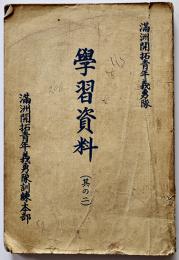 満洲開拓青年義勇隊
學習資料
(其の二)
満洲開拓青年義勇隊訓練本部